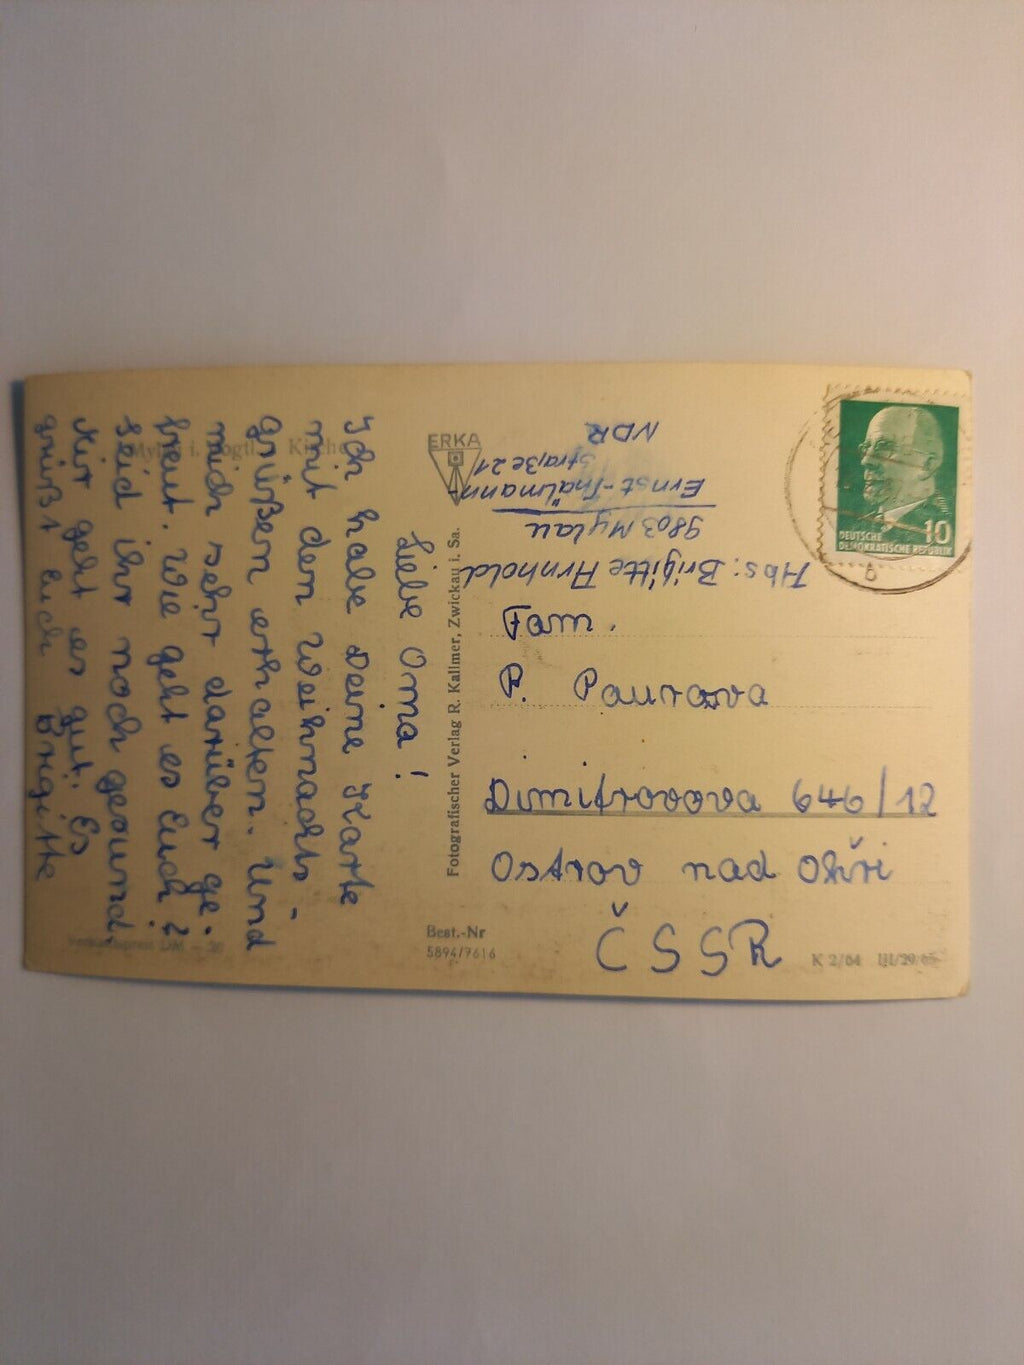 Mylau i. Vogtl. Kirche
Liebe Oma!
Ich habe Deine Karte
mit den Weihnachts-
grüßen erhalten. Und
mich sehr darüber ge-
freut. Wie geht es Euch?
Seid ihr noch gesund.
Mir geht es gut. Es
grüßt Euch Brigitte
Verkaufspreis DM
ERKA
Fotografischer Verlag R. Kallmer, Zwickau i. Sa.
Best.-Nr
5894/7616
Abs: Brigitte Arnhold
9803 Mylau
Ernst-Thälmann-
Straße 21
NDR
DEUTSCHE
DEMOKRATISCHE REPUBLIK
10
Fam.
P. Paurova
Dimitrovova 646/12
Ostrov nad Ohři
ČSSR
K 2/64 III/29/65